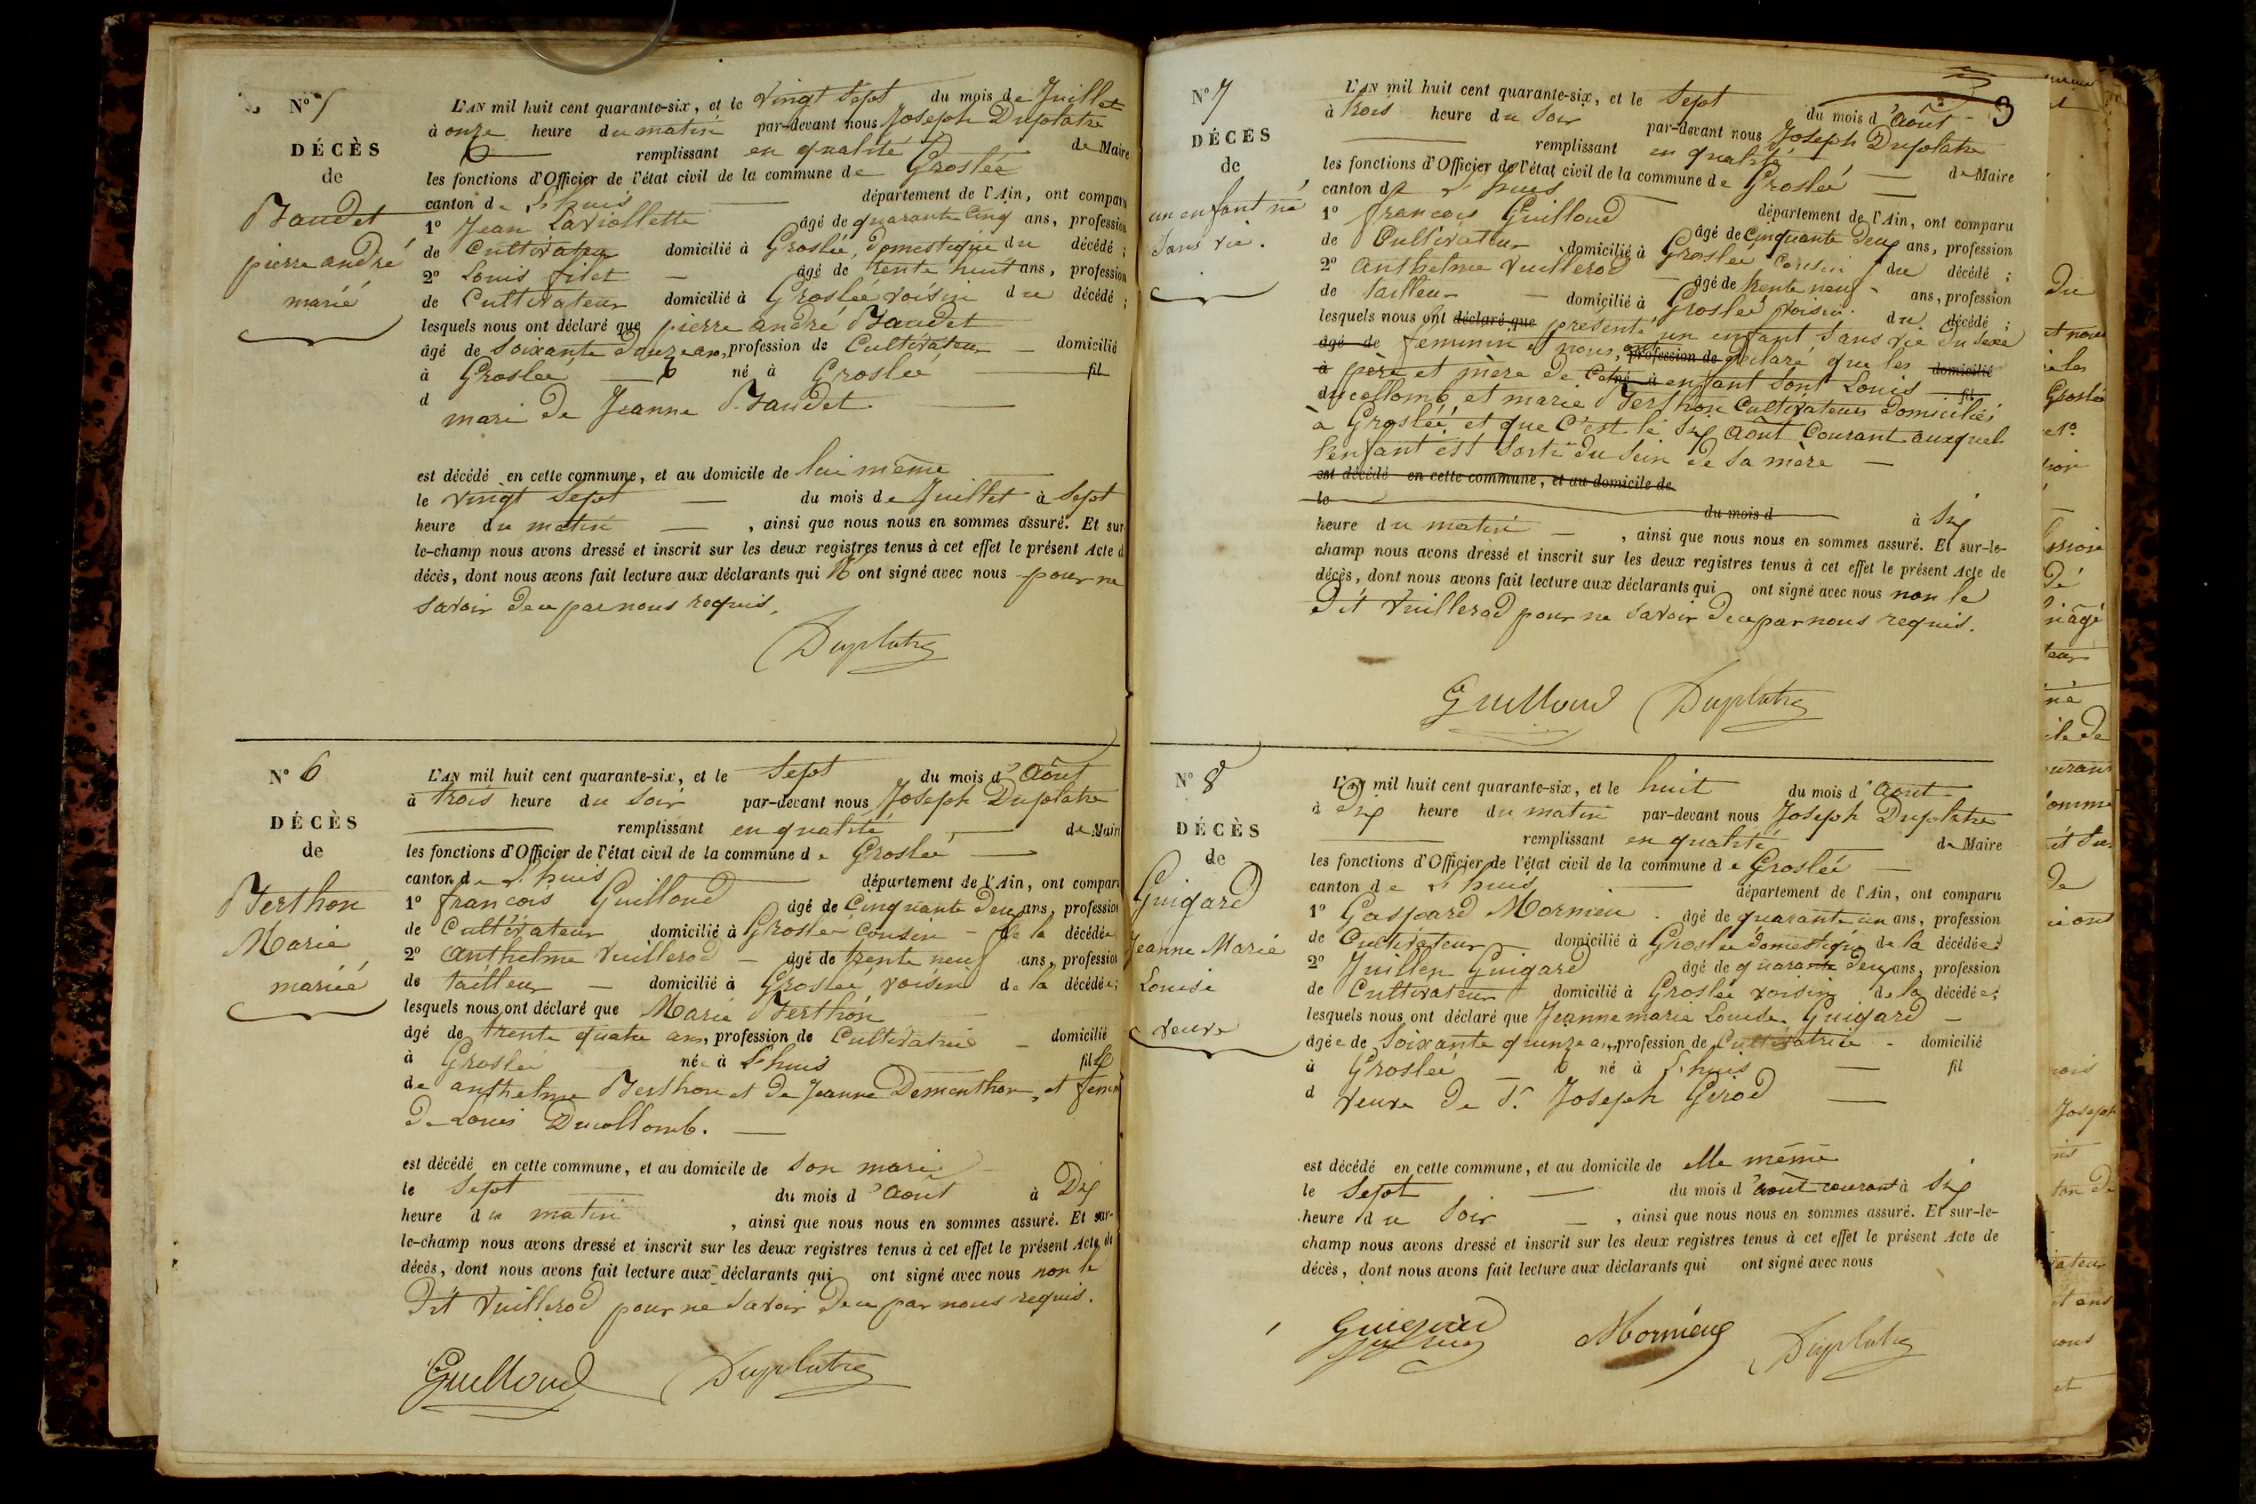 N° 5
DÉCÈS
de
Baudet
pierre andré
marié
L'AN mil huit cent quarante-six, et le vingt sept du mois de Juillet
à onze heure du matin par-devant nous Joseph Duplatre
remplissant en qualité de Maire
les fonctions d'Officier de l'état civil de la commune de Groslée
canton de L'huis département de l'Ain, ont comparu
1° Jean Laviollette âgé de quarante Cinq ans, profession
de Cultivateur domicilié à Groslée, domestique du décédé ;
2° Louis filet âgé de trente huit ans, profession
de Cultivateur domicilié à Groslée voisin du décédé ;
lesquels nous ont déclaré que pierre andré Baudet
âgé de soixante douze ans, profession de Cultivateur domicilié
à Groslée né à Groslée fil
d mari de Jeanne Baudet.
est décédé en cette commune, et au domicile de lui même
le vingt Sept du mois de Juillet à Sept
heure du matin , ainsi que nous nous en sommes assuré. Et sur-
le-champ nous avons dressé et inscrit sur les deux registres tenus à cet effet le présent Acte d
décès, dont nous avons fait lecture aux déclarants qui n'ont signé avec nous pour ne
savoir de ce par nous requis.
Duplatre
N° 6
DÉCÈS
de
Berthon
Marie
mariée
L'AN mil huit cent quarante-six, et le Sept du mois d'Août
à trois heure du Soir par-devant nous Joseph Duplatre
remplissant en qualité de Maire
les fonctions d'Officier de l'état civil de la commune de Groslée
canton de L'huis département de l'Ain, ont comparu
1° francois Guilloud âgé de Cinquante Deux ans, profession
de Cultivateur domicilié à Groslée Cousin de la décédée
2° Anthelme Vuillerod âgé de trente neuf ans, profession
de tailleur domicilié à Groslée, voisin de la décédée ;
lesquels nous ont déclaré que Marie Berthon
âgé de trente quatre ans, profession de Cultivatrice domicilié
à Groslée née à L'huis fille
de anthelme Berthon et de Jeanne Dementhon, et femme
de Louis Ducollomb.
est décédé en cette commune, et au domicile de Son mari
le Sept du mois d'Août à Dix
heure du matin , ainsi que nous nous en sommes assuré. Et sur-
le-champ nous avons dressé et inscrit sur les deux registres tenus à cet effet le présent Acte de
décès, dont nous avons fait lecture aux déclarants qui ont signé avec nous non le
Dit Vuillerod pour ne Savoir de ce par nous requis.
Guilloud Duplatre
3
N° 7
DÉCÈS
de
un enfant né
Sans vie.
L'AN mil huit cent quarante-six, et le Sept du mois d'Août
à trois heure du Soir par-devant nous Joseph Duplatre
remplissant en qualité de Maire
les fonctions d'Officier de l'état civil de la commune de Groslée
canton de L'huis département de l'Ain, ont comparu
1° francois Guilloud âgé de cinquante Deux ans, profession
de Cultivateur domicilié à Groslée Cousin du décédé ;
2° Anthelme Vuillerod âgé de trente neuf ans, profession
de tailleur domicilié à Groslée voisin du décédé ;
lesquels nous ont déclaré que présenté un enfant Sans vie Du Sexe
âgé de feminin et nous ont profession de déclaré que les domicilié
à père et mère de Cet né à enfant Sont Louis fil
ducollomb et marie Berthon Cultivateurs domiciliés
à Groslée, et que C'est le Six Août Courant auxquel
l'enfant est Sorti du Sein de Sa mère
est décédé en cette commune, et au domicile de
le du mois d à Six
heure du matin , ainsi que nous nous en sommes assuré. Et sur-le-
champ nous avons dressé et inscrit sur les deux registres tenus à cet effet le présent Acte de
décès, dont nous avons fait lecture aux déclarants qui ont signé avec nous non le
Dit Vuillerod pour ne Savoir de ce par nous requis.
Guilloud Duplatre
N° 8
DÉCÈS
de
Guigard
Jeanne Marie
Louise
veuve
L'AN mil huit cent quarante-six, et le huit du mois d'Août
à Dix heure du matin par-devant nous Joseph Duplatre
remplissant en qualité de Maire
les fonctions d'Officier de l'état civil de la commune de Groslée
canton de L'huis département de l'Ain, ont comparu
1° Gaspard Mornieu âgé de quarante un ans, profession
de Cultivateur domicilié à Groslée domestique de la décédée ;
2° Juillen Guigard âgé de quarante deux ans, profession
de Cultivateur domicilié à Groslée voisin de la décédée ;
lesquels nous ont déclaré que Jeanne marie Louise Guigard
âgée de Soixante quinze ans, profession de Cultivatrice domicilié
à Groslée né à L'huis fil
d veuve de Sr. Joseph Girod
est décédé en cette commune, et au domicile de elle même
le Sept du mois d'août courant à Six
heure du Soir , ainsi que nous nous en sommes assuré. Et sur-le-
champ nous avons dressé et inscrit sur les deux registres tenus à cet effet le présent Acte de
décès, dont nous avons fait lecture aux déclarants qui ont signé avec nous
Guigard Mornieux Duplatre